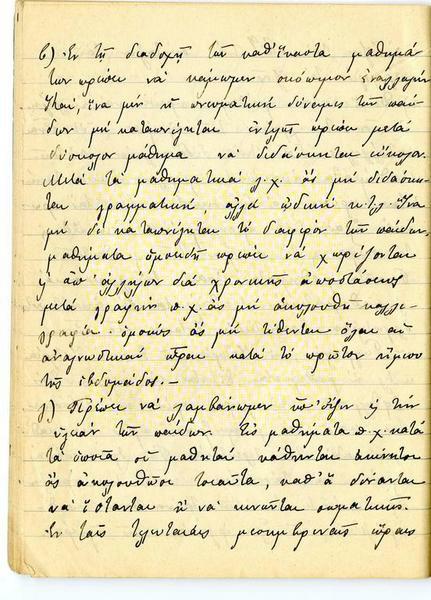 β) Ἐν τῇ διαδοχῇ τῶν καθ' ἕκαστα μαθημά-
των πρέπει νὰ κάμωμεν σκόπιμον ἐναλλαγήν
ἵνα μὴ ἡ πνευματικὴ δύναμις τῶν παί-
δων μὴ καταπονῆται ἐντελῶς πρέπει μετὰ
δύσκολον μάθημα νὰ διδάσκηται εὔκολον.
Μετὰ τὰ μαθηματικὰ λ.χ. ἂς μὴ διδάσκη-
ται γραμματικὴ ἀλλὰ ᾠδικὴ κ.τ.λ. Ἵνα
μὴ δὲ καταπονῆται τὸ διαφέρον τῶν παίδων,
μαθήματα ὁμοειδῆ πρέπει νὰ χωρίζονται
ἀπ' ἀλλήλων διὰ χρονικῆς ἀποστάσεως
μετὰ γραφὴν π.χ. ἂς μὴ ἀκολουθῇ καλλι-
γραφία· ὁμοίως ἂς μὴ τίθενται ὅλαι αἱ
ἀναγνωστικαὶ ὧραι κατὰ τὸ πρῶτον ἥμισυ
τῆς ἑβδομάδος.—
γ) Πρέπει νὰ λαμβάνωμεν ὑπ' ὄψιν τὴν
ὑγείαν τῶν παίδων. τὰ μαθήματα π.χ. κατὰ
τὰ ὁποῖα οἱ μαθηταὶ κάθηνται ἀκίνητοι
ἂς ἀκολουθῶσι τοιαῦτα, καθ' ἃ δύνανται
νὰ ἵστανται ἢ νὰ κινῶνται σωματικῶς.
Ἐν ταῖς τελευταίαις μεσημβριναῖς ὥραις